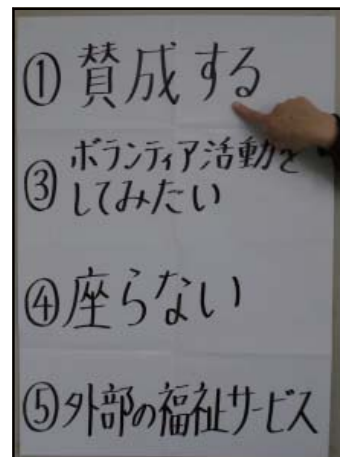 ①賛成する
③ボランティア活動を
してみたい
④座らない
⑤外部の福祉サービス